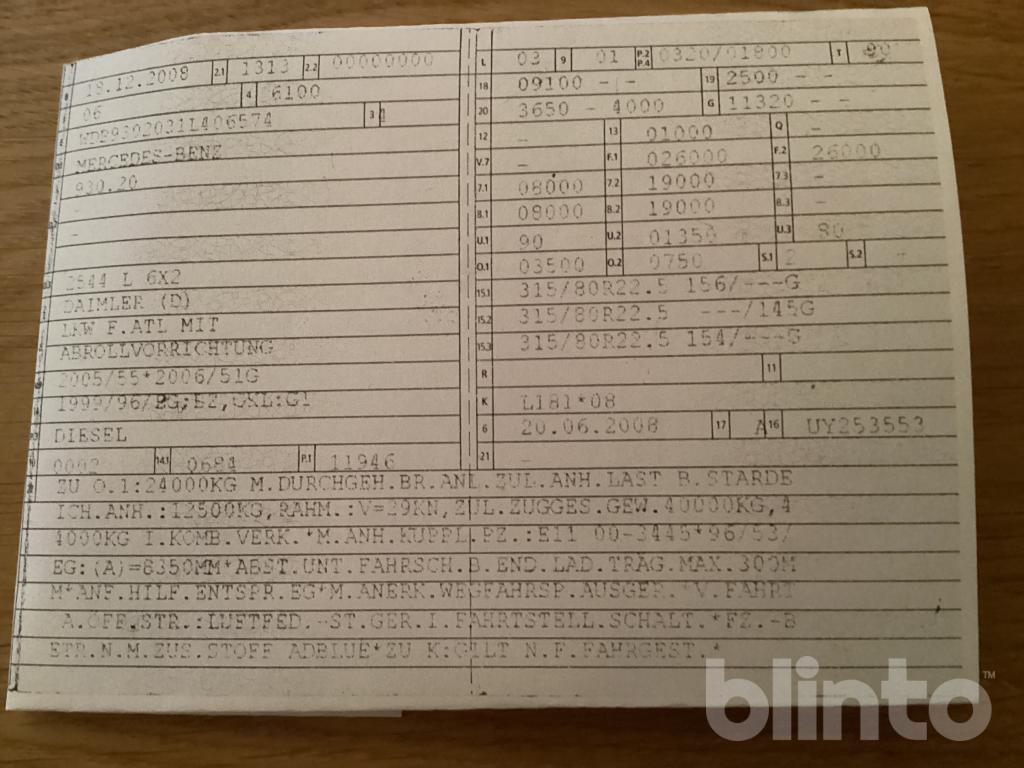 B 18.12.2008 2.1 1313 2.2 00000000
06 4 6100
E WDB9302031L406574 3
MERCEDES-BENZ
930.20
-
-
2544 L 6X2
DAIMLER (D)
LKW F.ATL MIT
ABROLLVORRICHTUNG
2005/55*2006/51G
1999/96/EG;EZ,GKL:G1
DIESEL
10 0002 14.1 0684 P.1 11946
L 03 9 01 P.2 P.4 0320/01800 T 90
18 09100 - - 19 2500 - -
20 3650 - 4000 G 11320 - -
12 - 13 01000 Q -
V.7 - F.1 026000 F.2 26000
7.1 08000 7.2 19000 7.3 -
8.1 08000 8.2 19000 8.3 -
U.1 90 U.2 01350 U.3 80
O.1 03500 O.2 0750 S.1 2 S.2 -
15.1 315/80R22.5 156/---G
15.2 315/80R22.5 ---/145G
15.3 315/80R22.5 154/---G
R 11
K L181*08
6 20.06.2008 17 A 16 UY253553
21 -
ZU O.1:24000KG M.DURCHGEH.BR.ANL.ZUL.ANH.LAST B.STARDE
ICH.ANH.:12500KG,RAHM.:V=29KN,ZUL.ZUGGES.GEW.40000KG,4
4000KG I.KOMB.VERK.*M.ANH.KUPPL.PZ.:E11 00-3445*96/53/
EG:(A)=8350MM*ABST.UNT.FAHRSCH.B.END.LAD.TRÄG.MAX.300M
M*ANF.HILF.ENTSPR.EG*M.ANERK.WEGFAHRSP.AUSGER.*V.FAHRT
A.ÖFF.STR.:LUFTFED.-ST.GER.I.FAHRTSTELL.SCHALT.*FZ.-B
ETR.N.M.ZUS.STOFF ADBLUE*ZU K:GILT N.F.FAHRGEST.*
blinto™